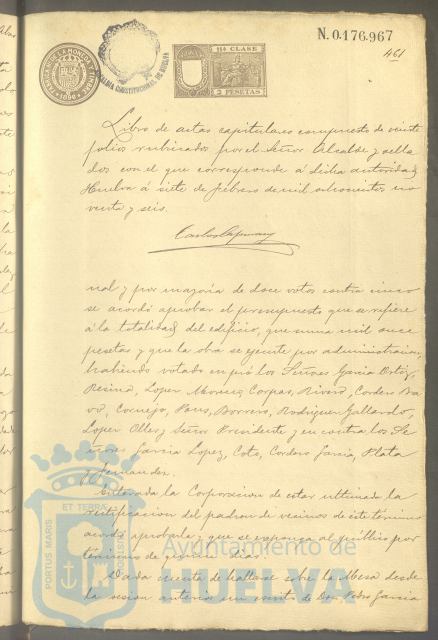 N. 0.176.967
461
11ª CLASE
2 PESETAS
1896
Libro de actas capitulares compuesto de veinte
folios rubricados por el Señor Alcalde y sella
dos con el que corresponde á dicha autoridad
Huelva á siete de febrero de mil ochocientos no
venta y seis.
nal y por mayoría de doce votos contra cinco
se acordó aprobar el presupuesto que se refiere
á la totalidad del edificio, que suma mil once
pesetas y que la obra se ejecute por administracion,
habiendo votado en pró los Señores Garcia Ortiz,
Lopez Moreno, Corpas, Rivero, Cordero Bra
vo, Cornejo, Borrero, Rodriguez Gallardo,
Lopez y Señor Presidente y en contra los Se
ñores Garcia Lopez, Coto, Cordero Garcia, Plata
y Fernandez.
Enterada la Corporacion de estar ultimada la
rectificacion del padron de vecinos de este término
acordó aprobarla y que se exponga al público por
término de quince dias.
Dada cuenta de hallarse sobre la Mesa desde
la sesion anterior un escrito de Don Pedro Garcia
PORTUS MARIS
ET TERRAE
CUSTODIA
Ayuntamiento de
HUELVA